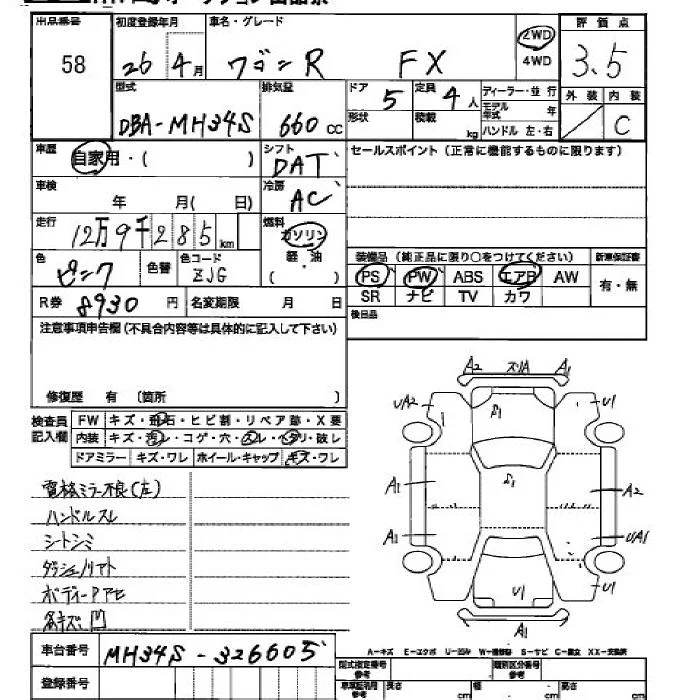 出品番号 初度登録年月 車名・グレード 2WD 4WD 評価点
58 26年4月 ワゴンR FX 3.5
型式 排気量 ドア 5 定員 4人 ディーラー・並行 外装 内装
DBA-MH34S 660cc 形状 積載 kg モデル年式 年 ハンドル 左・右 C
車歴 自家用・( ) シフト DAT セールスポイント(正常に機能するものに限ります)
車検 年 月( 日) 冷房 AC
走行 12万9千285km 燃料 ガソリン 軽・油 ( )
色 ピンク 色替 色コード ZJG 装備品(純正品に限り○をつけてください) 新車保証書
PS PW ABS エアB AW 有・無
R券 8930円 名変期限 月 日 SR ナビ TV カワ
注意事項申告欄(不具合内容等は具体的に記入して下さい) 後日品
修復歴 有(箇所 )
検査員記入欄 FW キズ・飛石・ヒビ割・リペア跡・X要
内装 キズ・汚レ・コゲ・穴・スレ・ヘタリ・破レ
ドアミラー キズ・ワレ ホイール・キャップ キズ・ワレ
A2 スリA A1
UA2 S1 U1
S1
A1 A2
A1 UA1
U1 U1
A1
電格ミラー不良(左)
ハンドルスレ
シートシミ
ボディー
車台番号 MH34S-326605
登録番号
A-キズ E-エクボ U-凹み W-補修跡 S-サビ C-腐食 XX-交換済
型式指定番号 参考 類別区分番号 参考
長さ cm 幅 cm 高さ cm